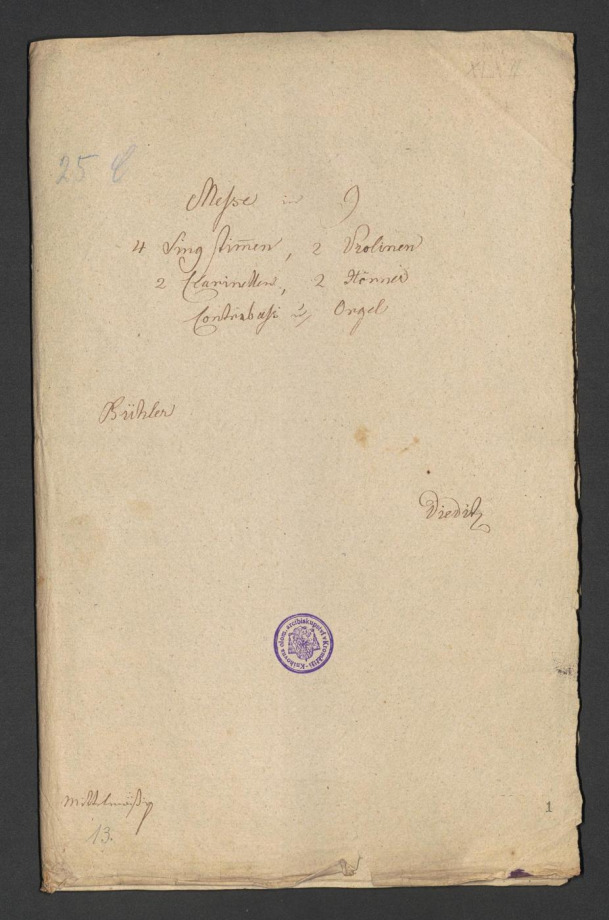 25 C
Messe in G
4 Singstim̅en, 2 Violinen
2 Clarinetten, 2 Hörner
Contrabass &, Orgel
Bühler
Dieditz
Knihovna olom. arcibiskupství v Kroměříži
Mittelmäßig
13.
1